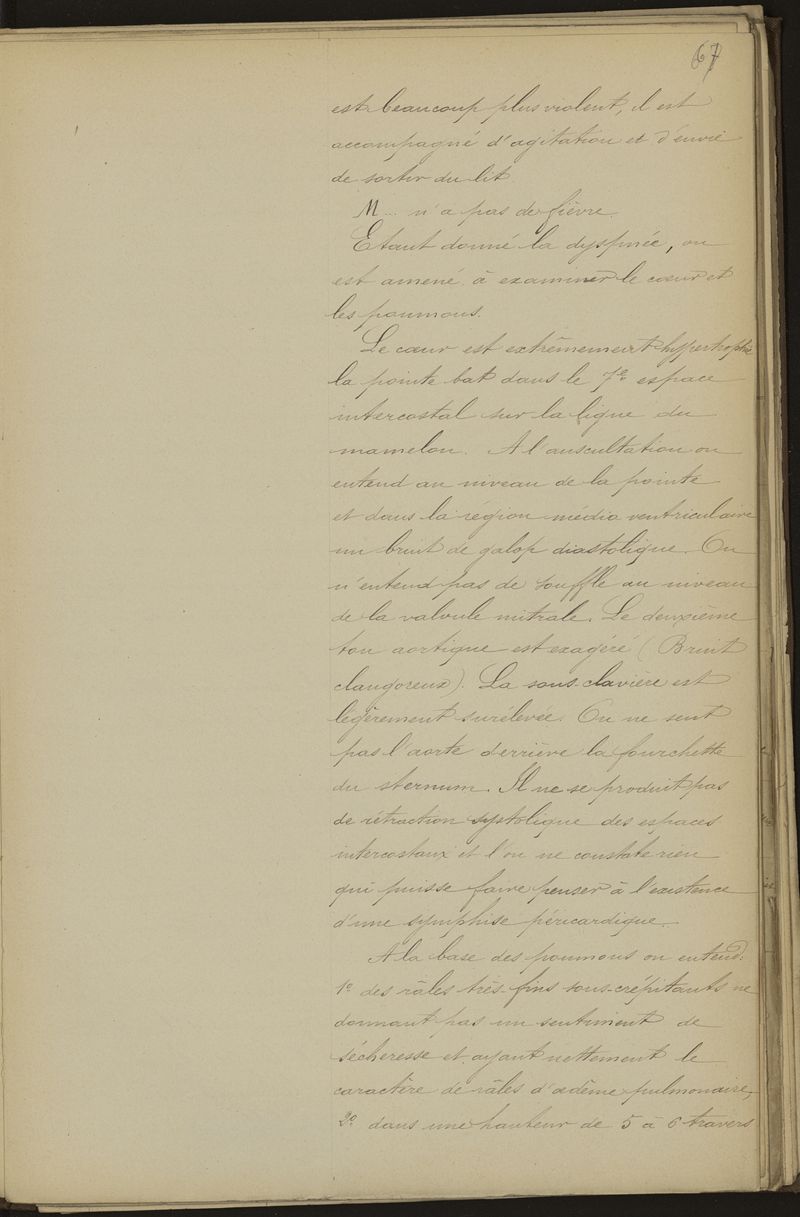 67
est beaucoup plus violent, il est
accompagné d'agitation et d'envie
de sortir du lit.
M... n'a pas de fièvre.
Etant donné la dyspnée, on
est amené à examiner le cœur et
les poumons.
Le cœur est extrêmement hypertrophié
la pointe bat dans le 7e espace
intercostal sur la ligne du
mamelon. A l'auscultation on
entend au niveau de la pointe
et dans la région médio ventriculaire
un bruit de galop diastolique. On
n'entend pas de souffle au niveau
de la valvule mitrale. Le deuxième
ton aortique est exagéré (Bruit
clangoreux). La sous-clavière est
légèrement surélevée. On ne sent
pas l'aorte derrière la fourchette
du sternum. Il ne se produit pas
de rétraction systolique des espaces
intercostaux et l'on ne constate rien
qui puisse faire penser à l'existence
d'une symphise péricardique.
A la base des poumons on entend:
1o des râles très-fins sous-crépitants ne
donnant pas un sentiment de
sécheresse et ayant nettement le
caractère de râles d'œdème pulmonaire,
2o dans une hauteur de 5 à 6 travers